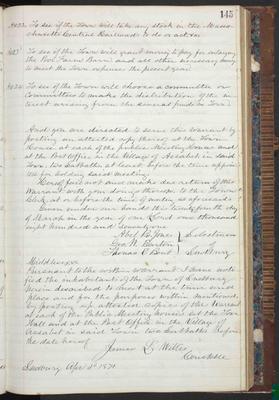 145
No 22. To see if the Town will take any stock in the Massa-
chusetts Central Railroad & to do or act on
No 23 To see if the Town will grant money to pay for enlarging
the Poor Farm Barn and all other necessary
to meet the Town expenses the present year
No 24 To see if the Town will choose a committee or
Committees to make the distribution of the in-
terest arising from the several funds in Town.
And you are directed to serve this warrant by
posting an attested copy thereof at the Town
House at each of the public Meeting Houses and
at the Post Office in the Village of Assabet in said
Town two Sabbaths at least before the time appoin-
ted for holding said meeting.
Hereof fail not and make due return of this
Warrant with your doings thereon to the Town
Clerk at or before the time of meeting as aforesaid
Given under our hands this twenty day
of March in the year of our Lord one thousand
eight hundred and seventy one
Abel B. Jones
Geo. N.
Thomas
Selectmen
of
Sudbury
Middlesex ss
Pursuant to the within Warrant I have noti-
fied the inhabitants of the Town of Sudbury
herein described to meet at the time and
place and for the purposes within mentioned
by posting up attested copies of the Warrant
at each of the Public Meeting houses at the Town
Hall and at the Post Office in the Village of
Assabet in said Town two Sabbaths before
the date hereof
James L. Willis
Constable
Sudbury Apr 3d 1871